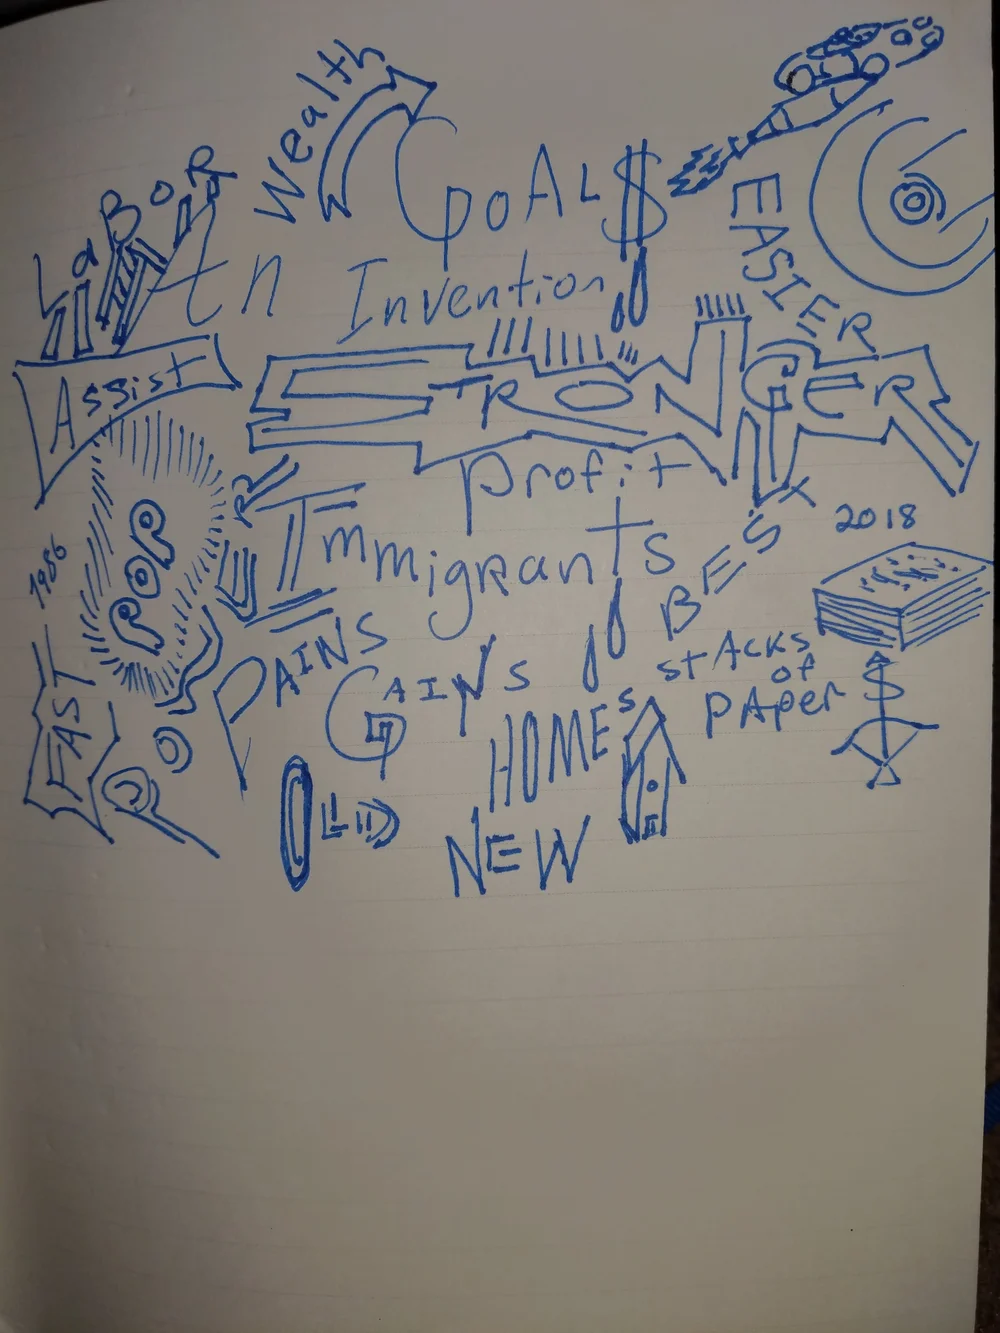 Wealth
GOAL$
LaBoR
An Invention
EASIER
Assist
STRONGER
Profit
POP
Immigrants
BEST
2018
1986
FAST
PAINS
GAINS
STACKS
of
PAPer
HOMES
OLD
NEW